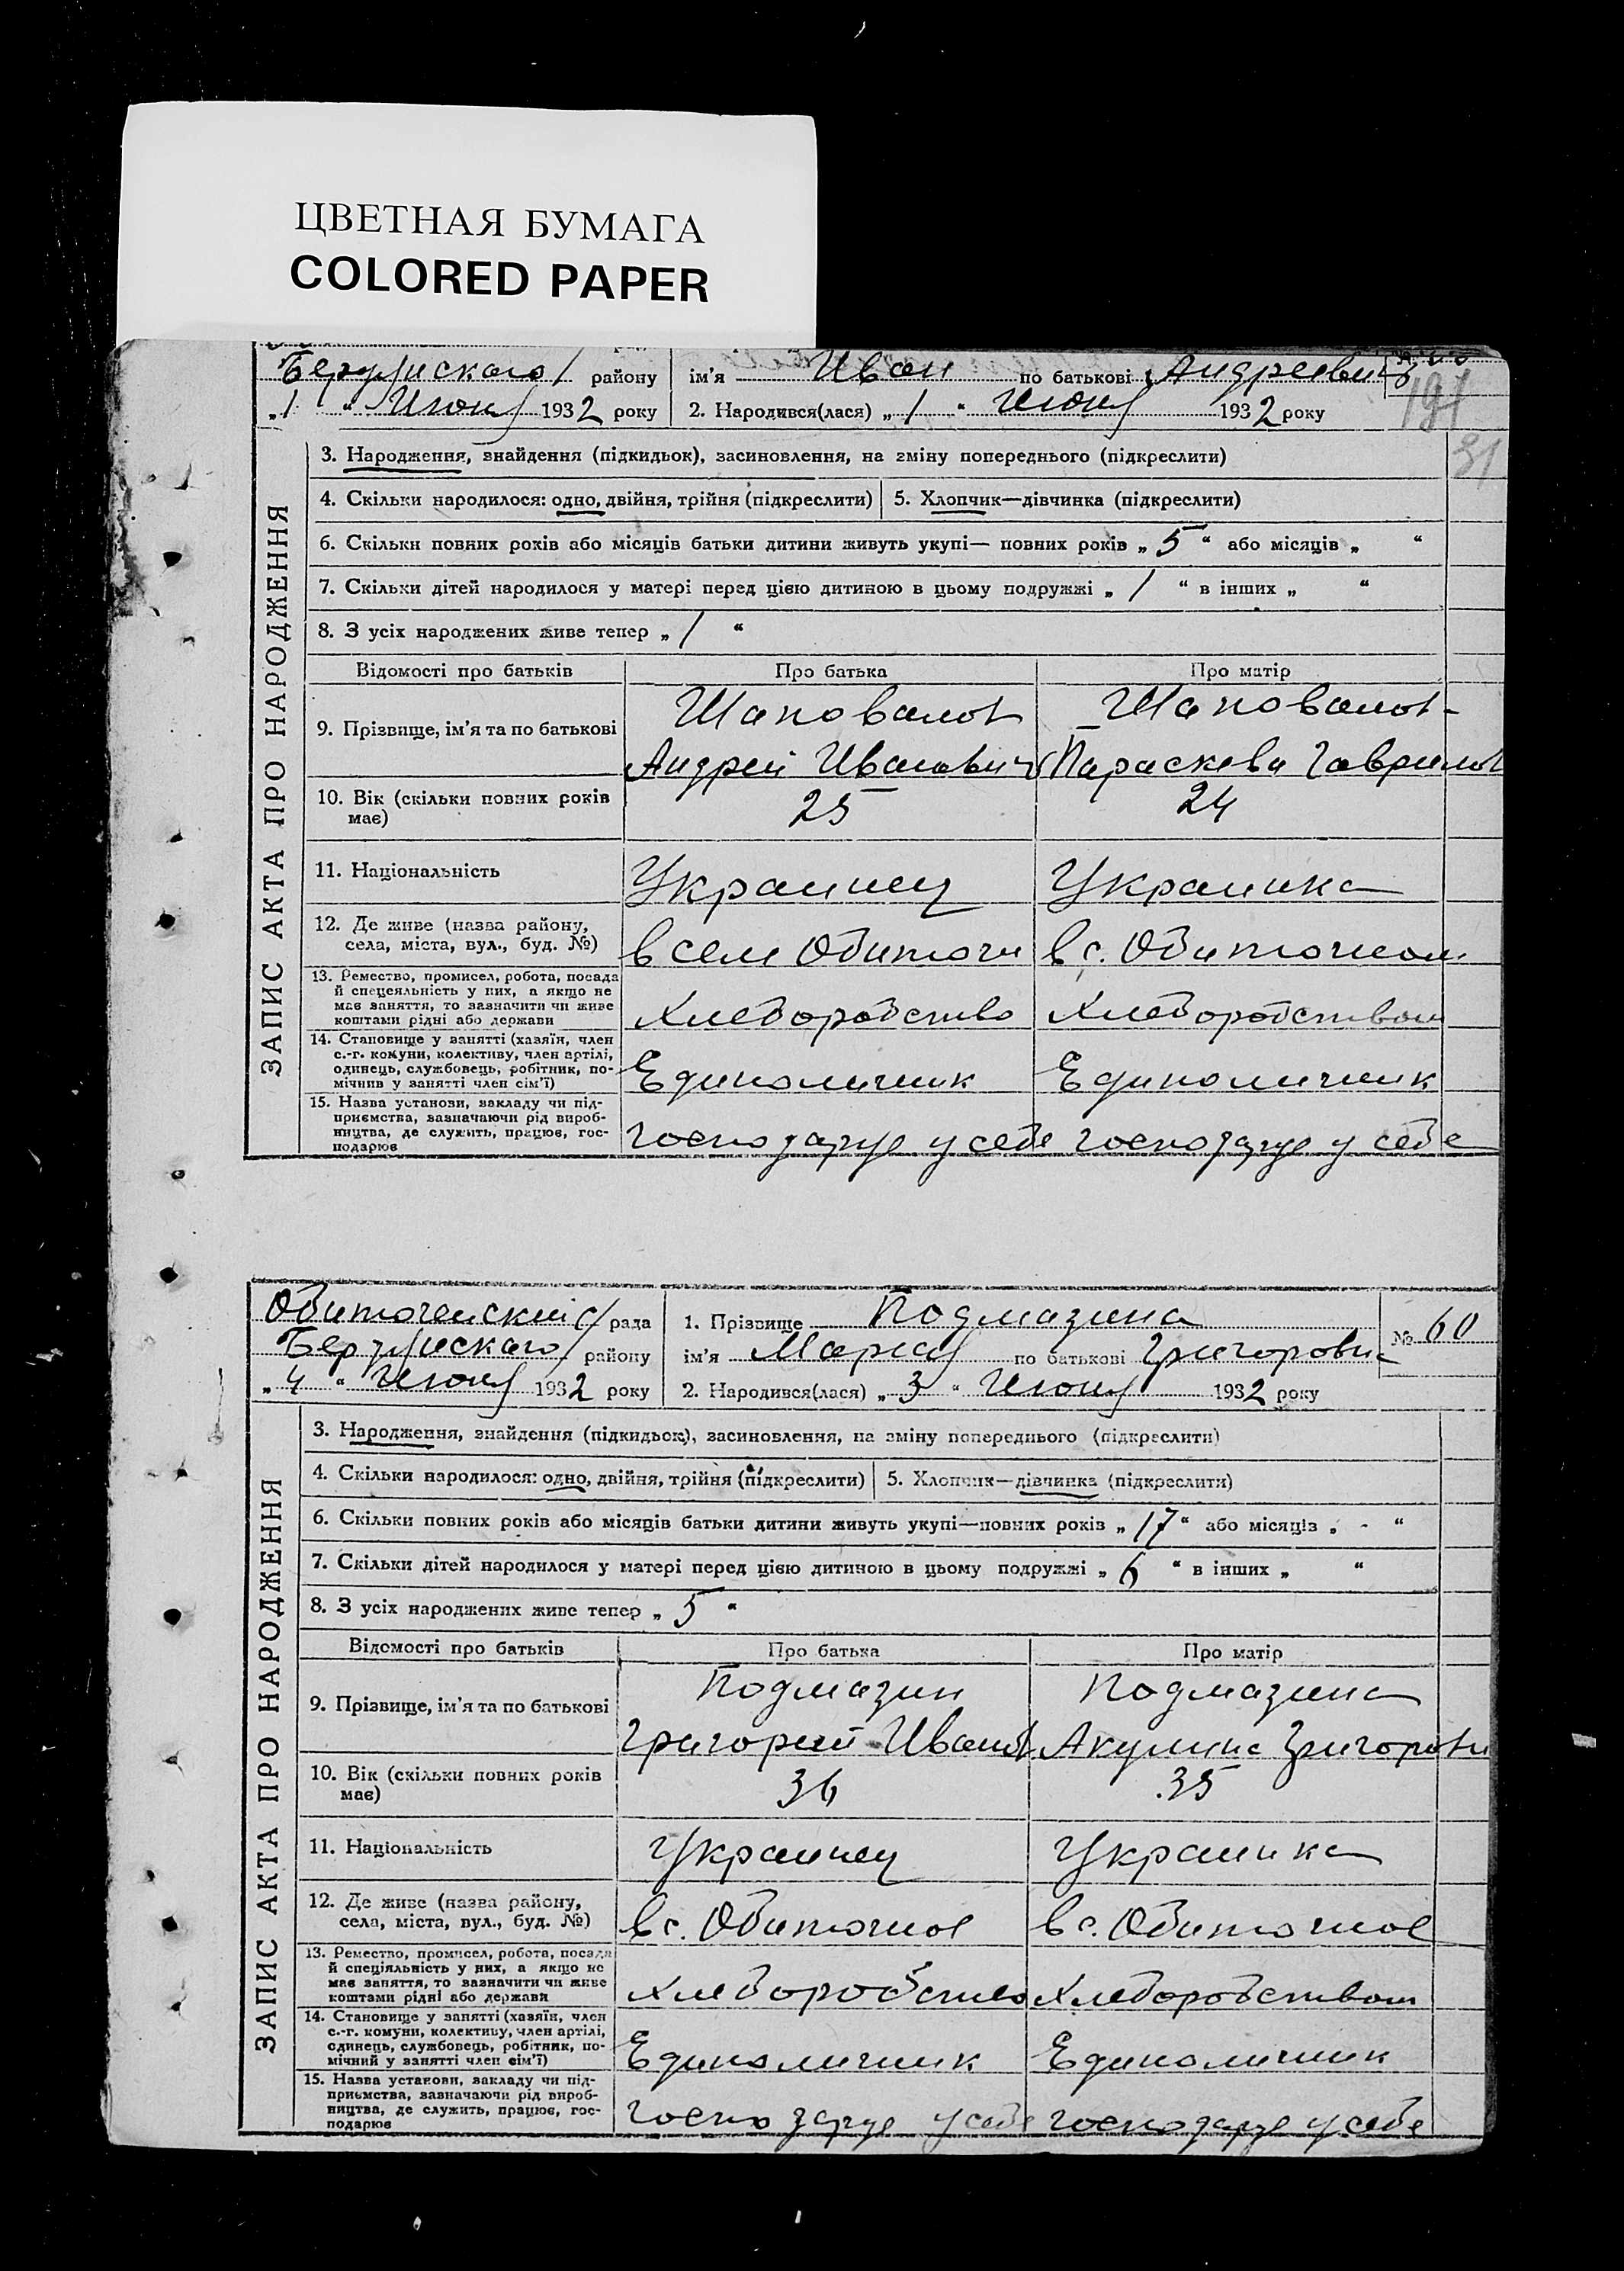 ЦВЕТНАЯ БУМАГА
COLORED PAPER
району ім'я Иван по батькові Андреевич
191
„1“ Июня 1932 року 2. Народився(лася) „1“ Июня 1932 року
31
3. Народження, знайдення (підкидьок), засиновлення, на зміну попереднього (підкреслити)
4. Скільки народилося: одно, двійня, трійня (підкреслити) 5. Хлопчик—дівчинка (підкреслити)
6. Скільки повних років або місяців батьки дитини живуть укупі— повних років „5“ або місяців „ “
7. Скільки дітей народилося у матері перед цією дитиною в цьому подружжі „1“ в інших „ “
8. З усіх народжених живе тепер „1“
ЗАПИС АКТА ПРО НАРОДЖЕННЯ
Відомості про батьків Про батька Про матір
9. Прізвище, ім'я та по батькові
Шаповалов Шаповалов-
Андрей Иванович Параскева Гаврилов
10. Вік (скільки повних років має)
25 24
11. Національність
Украинец Украинка
12. Де живе (назва району,
села, міста, вул., буд. №)
в селе Обиточн в с. Обиточном
13. Ремество, промисел, робота, посада
й спецеяльність у них, а якщо не
має заняття, то зазначити чи живе
коштами рідні або держави
Хлеборобство Хлеборобством
14. Становище у занятті (хазяїн, член
с.-г. комуни, колективу, член артілі,
одинець, службовець, робітник, по-
мічнив у занятті член сім'ї)
Единоличник Единоличник
15. Назва установи, закладу чи під-
приємства, зазначаючи рід вироб-
ництва, де служить, працює, гос-
подарює
господарує у себе господарує у себе
Обиточенский с/рада 1. Прізвище Подмазина № 60
району ім'я Мария по батькові Григоровна
„4“ Июня 1932 року 2. Народився(лася) „3“ Июня 1932 року
3. Народження, знайдення (підкидьок), засиновлення, на зміну попереднього (підкреслити)
4. Скільки народилося: одно, двійня, трійня (підкреслити) 5. Хлопчик—дівчинка (підкреслити)
6. Скільки повних років або місяців батьки дитини живуть укупі—повних років „17“ або місяців „-“
7. Скільки дітей народилося у матері перед цією дитиною в цьому подружжі „6“ в інших „ “
8. З усіх народжених живе тепер „5“
ЗАПИС АКТА ПРО НАРОДЖЕННЯ
Відомості про батьків Про батька Про матір
9. Прізвище, ім'я та по батькові
Подмазин Подмазина
Григорий Иванов Акулина Григоровн
10. Вік (скільки повних років має)
36 35
11. Національність
Украинец Украинка
12. Де живе (назва району,
села, міста, вул., буд. №)
в с. Обиточное в с. Обиточное
13. Ремество, промисел, робота, посада
й спеціяльність у них, а якщо не
має заняття, то зазначити чи живе
коштами рідні або держави
Хлеборобство Хлеборобством
14. Становище у занятті (хазяїн, член
с.-г. комуни, колективу, член артілі,
одинець, службовець, робітник, по-
мічний у занятті член сім'ї)
Единоличник Единоличник
15. Назва установи, закладу чи під-
приємства, зазначаючи рід вироб-
ництва, де служить, працює, гос-
подарює
господарує у себе господарує у себе